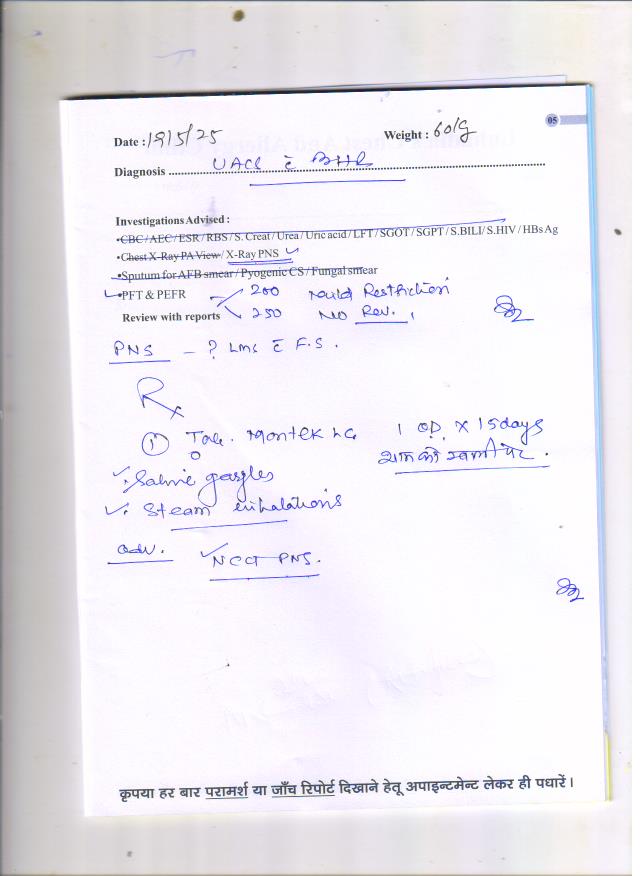 05
Date : 19/5/25 Weight : 60kg
Diagnosis UACS c̄ BHR
Investigations Advised :
•CBC / AEC / ESR / RBS / S. Creat / Urea / Uric acid / LFT / SGOT / SGPT / S.BILI / S.HIV / HBs Ag
•Chest X-Ray PA View / X-Ray PNS
•Sputum for AFB smear / Pyogenic CS / Fungal smear
•PFT & PEFR 200 Mild Restriction
Review with reports 250 No Rev.
PNS - ? LMS c̄ F.S.
Rx
① Tab. Montek LC 1 OD x 15 days
शाम को खाली पेट.
Saline gargles
Steam inhalations
adv. NCCT PNS.
कृपया हर बार परामर्श या जाँच रिपोर्ट दिखाने हेतू अपाइन्टमेन्ट लेकर ही पधारें।